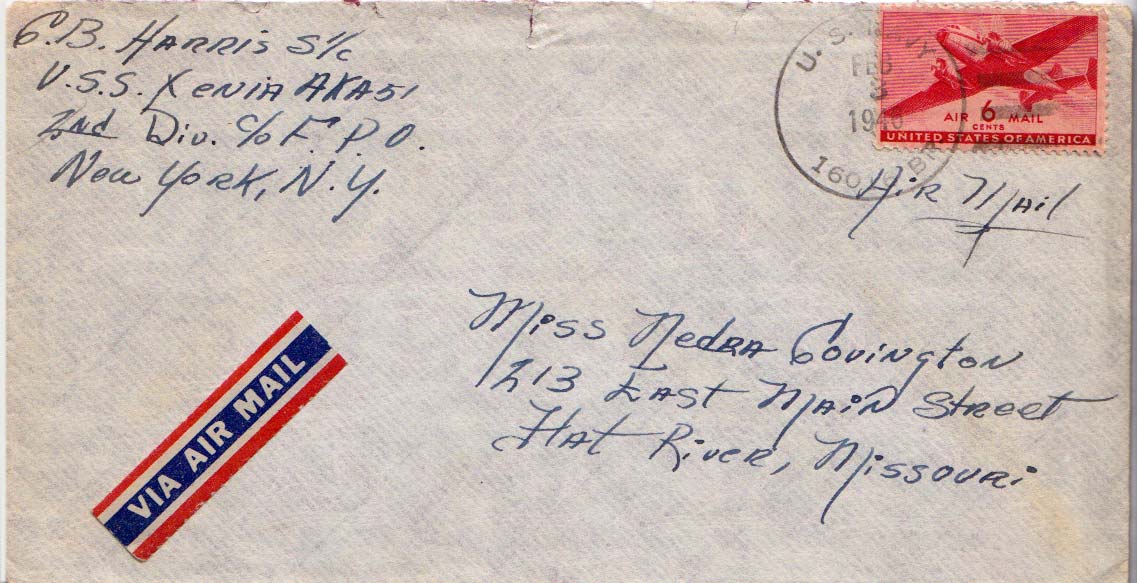 C.B. Harris S 1/c
U.S.S. Xenia AKA 51
2nd Div. c/o F.P.O.
New York, N.Y.
U.S. NAVY
FEB
3
194
160 BR
AIR 6 MAIL
CENTS
UNITED STATES OF AMERICA
Air Mail
Miss Nedra Covington
213 East Main Street
Flat River, Missouri
VIA AIR MAIL